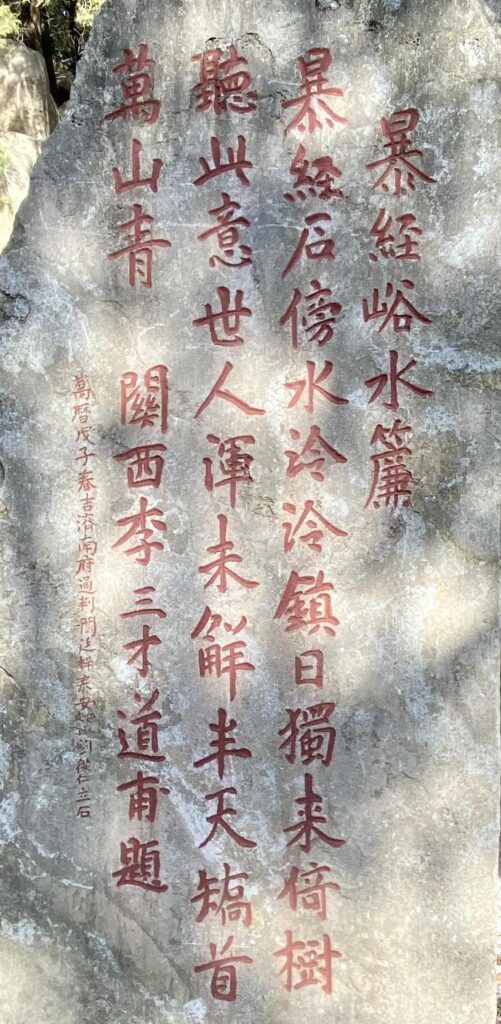 暴經峪水簾
暴經石傍水泠泠鎮日獨来倚樹
聽此意世人渾未解半天矯首
萬山青
關西李三才道甫題
萬曆戊子春吉濟南府通判閆廷
泰安
立石